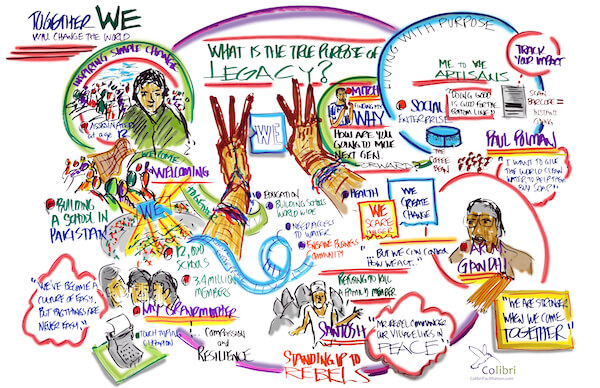 TOGETHER WE
WILL CHANGE THE WORLD
INSPIRING SIMPLE CHANGE
ASSASSINATED
at age 12
WHAT IS THE TRUE PURPOSE OF
LEGACY?
LIVING WITH PURPOSE
ME TO WE
ARTISANS
TRACK
YOUR IMPACT
"DOING GOOD
IS GOOD FOR THE
BOTTOM LINE"
SCAN
BARCODE =
INSTANT
GIVING
SOCIAL
ENTERPRISE
THE
COFFEE
BEAN
MITCH
FINDING MY
WHY
HOW ARE YOU
GOING TO MOVE
NEXT GEN.
FORWARD?
PAUL POLMAN
"I WANT TO GIVE
THE WORLD CLEAN
WATER TO HELP THEM
BUY SOAP"
WE
WELCOME
WELCOMING
TOGETHER
WE
BUILDING
A SCHOOL IN
PAKISTAN
EDUCATION
BUILDING SCHOOLS
WORLD WIDE
NEED ACCESS
TO WATER
ENGAGE BUSINESS
COMMUNITY
HEALTH
WE
CREATE
CHANGE
WE
SCARE
HATE
"BUT WE CAN CONTROL
HOW WE ACT."
ARUN
GANDHI
12,000
SCHOOLS
3.4 MILLION
MEMBERS
"WE'VE BECOME A
CULTURE OF EASY.
BUT BIG THINGS ARE
NEVER EASY."
MY GRANDMOTHER
TOUCH TYPING
COMPASSION
and
RESILIENCE
REFUSING TO KILL
A FAMILY MEMBER
SANTOSH
STANDING UP TO
REBELS
MR. REBEL COMMANDER
OUR VILLAGE LIVES IN
PEACE
"WE ARE STRONGER
WHEN WE COME
TOGETHER"
Colibri
ColibriFacilitation.com